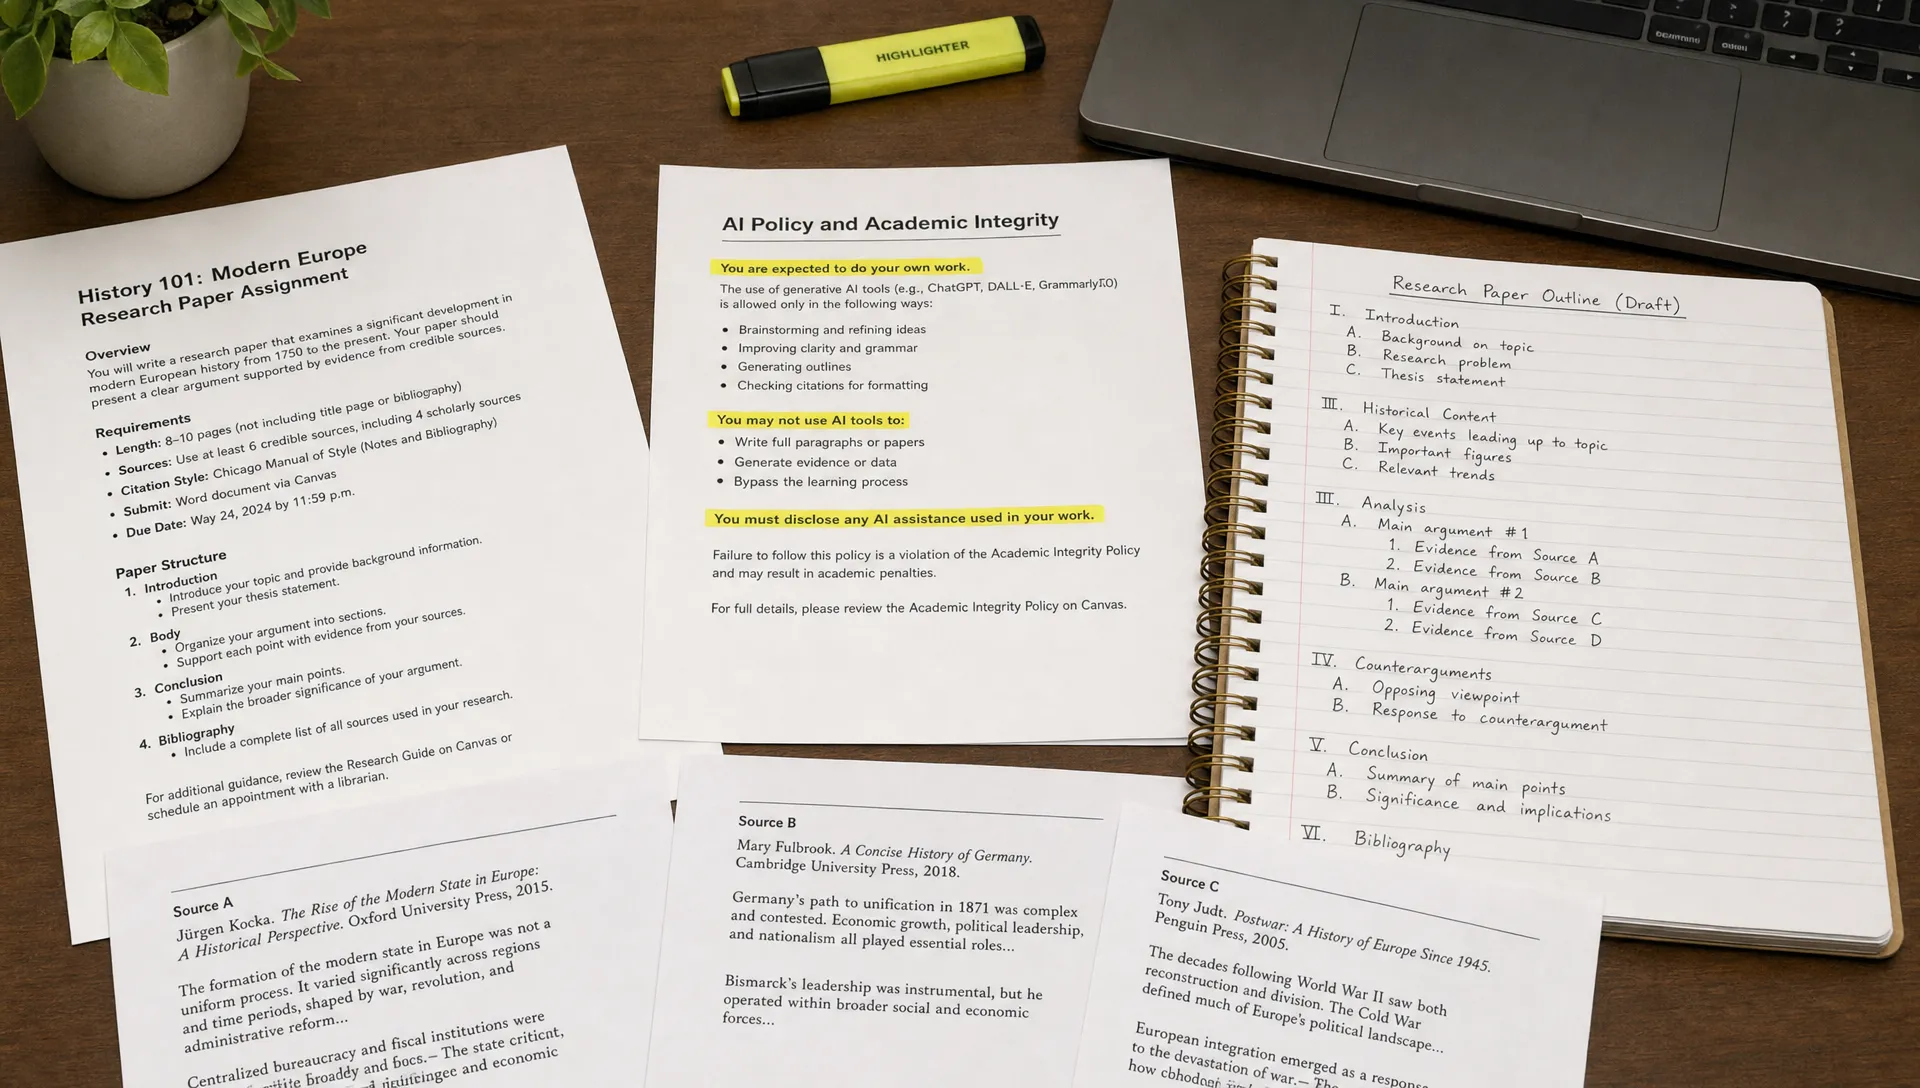 HIGHLIGHTER
History 101: Modern Europe
Research Paper Assignment
Overview
You will write a research paper that examines a significant development in
modern European history from 1750 to the present. Your paper should
present a clear argument supported by evidence from credible sources.
Requirements
• Length: 8–10 pages (not including title page or bibliography)
• Sources: Use at least 6 credible sources, including 4 scholarly sources
• Citation Style: Chicago Manual of Style (Notes and Bibliography)
• Submit: Word document via Canvas
• Due Date: Way 24, 2024 by 11:59 p.m.
Paper Structure
1. Introduction
• Introduce your topic and provide background information.
• Present your thesis statement.
2. Body
• Organize your argument into sections.
• Support each point with evidence from your sources.
3. Conclusion
• Summarize your main points.
• Explain the broader significance of your argument.
4. Bibliography
• Include a complete list of all sources used in your research.
For additional guidance, review the Research Guide on Canvas or
schedule an appointment with a librarian.
AI Policy and Academic Integrity
You are expected to do your own work.
The use of generative AI tools (e.g., ChatGPT, DALL-E,
is allowed only in the following ways:
• Brainstorming and refining ideas
• Improving clarity and grammar
• Generating outlines
• Checking citations for formatting
You may not use AI tools to:
• Write full paragraphs or papers
• Generate evidence or data
• Bypass the learning process
You must disclose any AI assistance used in your work.
Failure to follow this policy is a violation of the Academic Integrity Policy
and may result in academic penalties.
For full details, please review the Academic Integrity Policy on Canvas.
Research Paper Outline (Draft)
I. Introduction
A. Background on topic
B. Research problem
C. Thesis statement
III. Historical Content
A. Key events leading up to topic
B. Important figures
C. Relevant trends
III. Analysis
A. Main argument #1
1. Evidence from Source A
2. Evidence from Source B
B. Main argument #2
1. Evidence from Source C
2. Evidence from Source D
IV. Counterarguments
A. Opposing viewpoint
B. Response to counterargument
V. Conclusion
A. Summary of main points
B. Significance and implications
VI. Bibliography
Source A
Jürgen Kocka. The Rise of the Modern State in Europe:
A Historical Perspective. Oxford University Press, 2015.
The formation of the modern state in Europe was not a
uniform process. It varied significantly across regions
and time periods, shaped by war, revolution, and
administrative reform...
Centralized bureaucracy and fiscal institutions were
broadly and The state
and economic
Source B
Mary Fulbrook. A Concise History of Germany.
Cambridge University Press, 2018.
Germany's path to unification in 1871 was complex
and contested. Economic growth, political leadership,
and nationalism all played essential roles...
Bismarck's leadership was instrumental, but he
operated within broader social and economic
forces...
Source C
Tony Judt. Postwar: A History of Europe Since 1945.
Penguin Press, 2005.
The decades following World War II saw both
reconstruction and division. The Cold War
defined much of Europe's political landscape...
European integration emerged as a
to the devastation of war.–
how